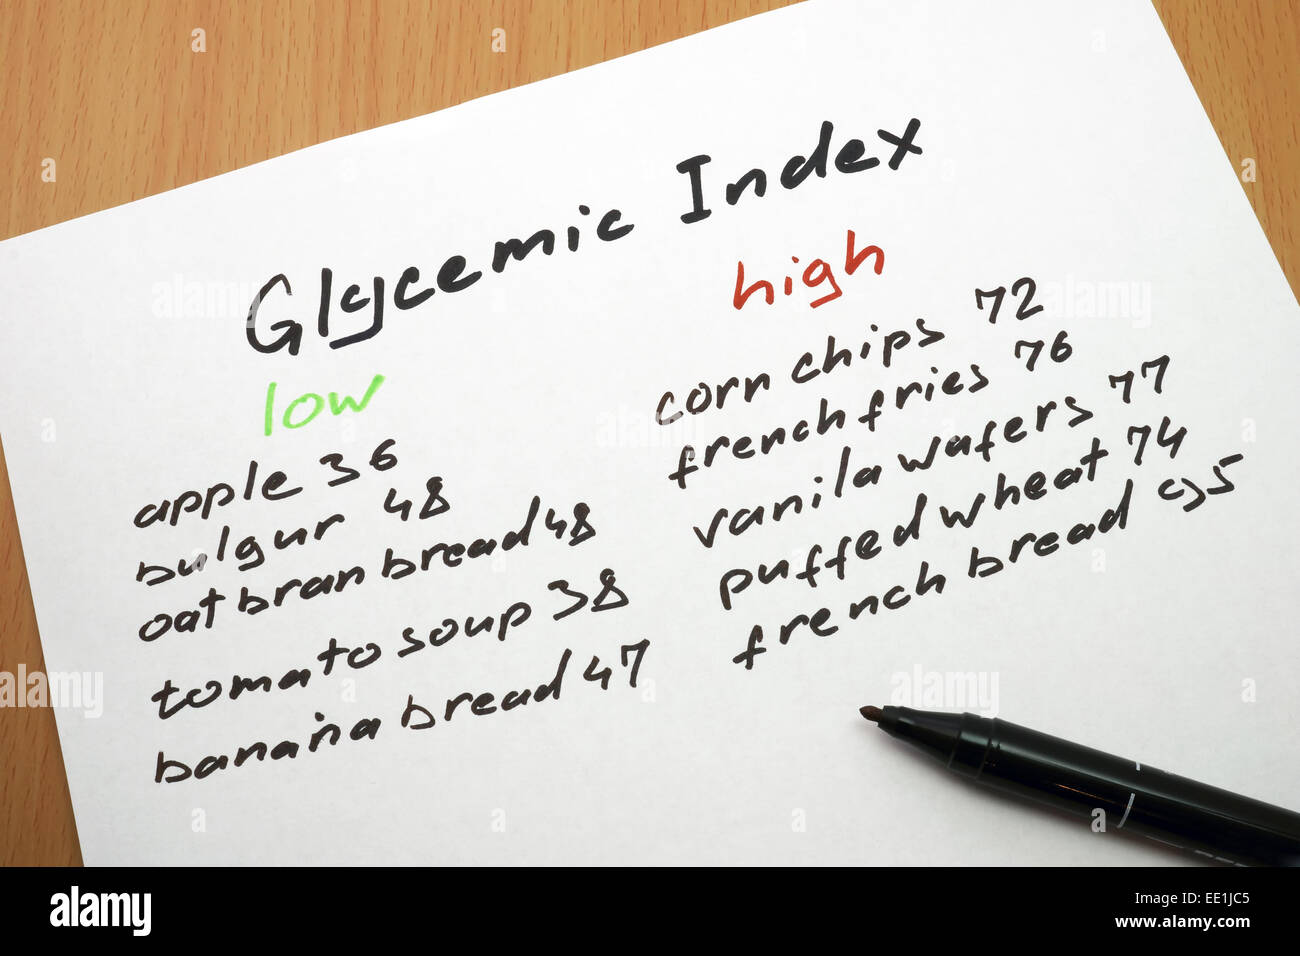 Glycemic Index
low
apple 36
bulgur 48
oat bran bread 48
tomato soup 38
banana bread 47
high
corn chips 72
french fries 76
vanila wafers 77
puffed wheat 74
french bread 95
a
a
a
a
a
a
alamy
alamy
alamy
a
a
a
alamy
alamy
a
a
a
alamy
Image ID: EE1JC5
www.alamy.com